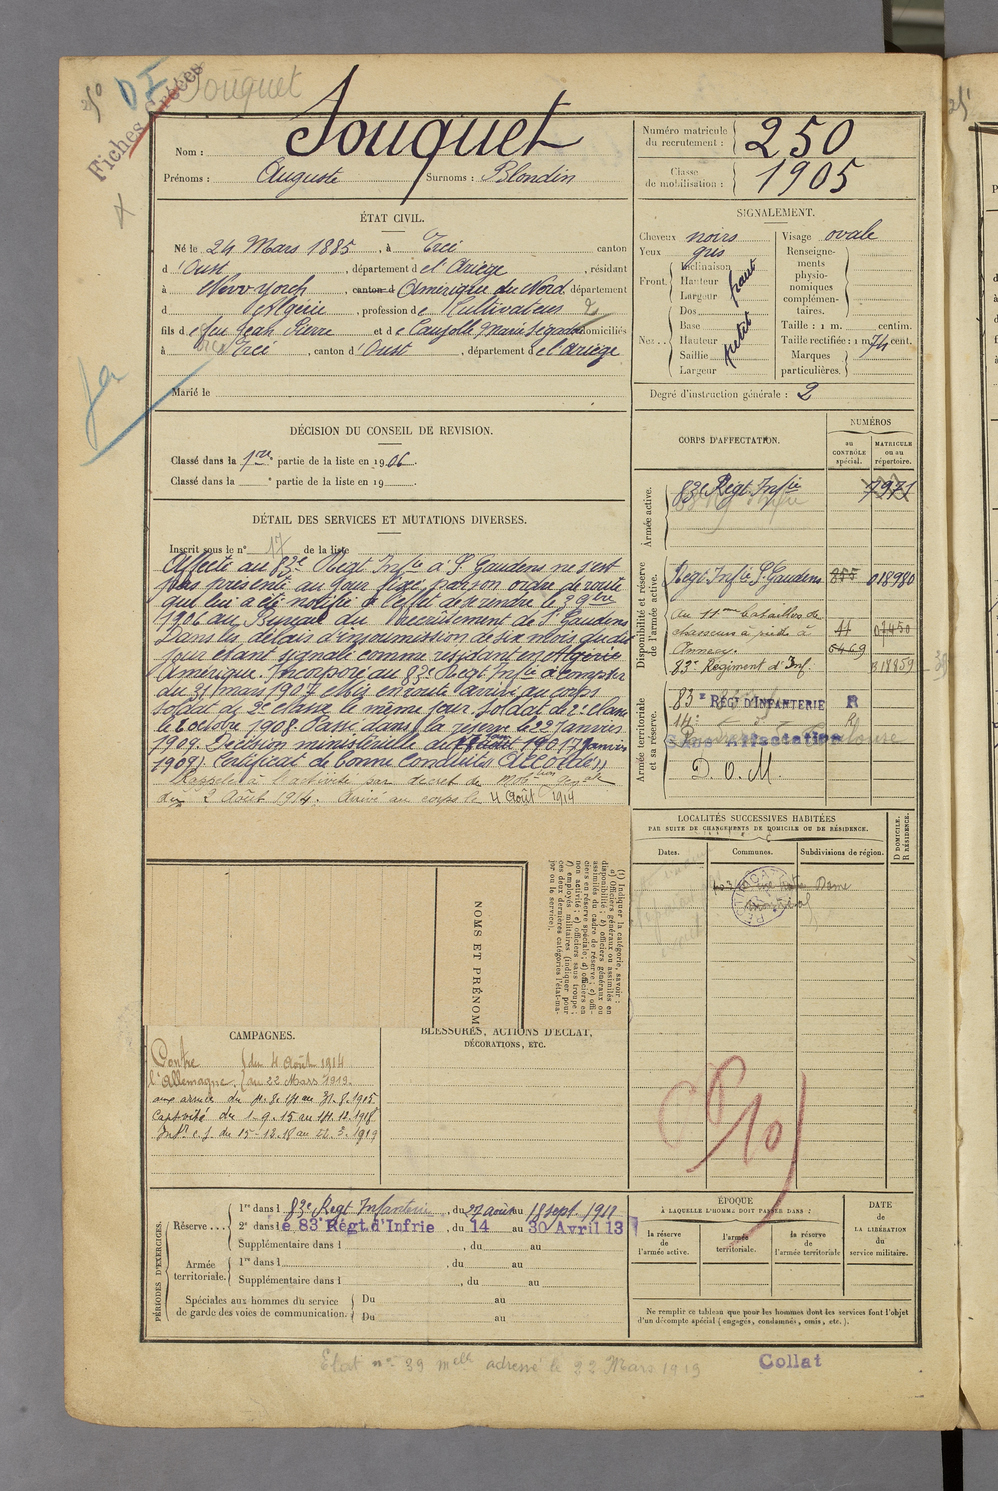 Souquet
Fiches Créées
Nom : Souquet
Prénoms : Auguste Surnoms : Blondin
Numéro matricule du recrutement : 250
Classe de mobilisation : 1905
ÉTAT CIVIL.
Né le 24 Mars 1885, à Ercé canton
d'Oust, département de l'Ariège, résidant
à New-Yorck, canton d Amérique du Nord, département
d Algérie, profession de Cultivateur 2
fils de feu Jean Pierre et de domiciliés
à Ercé, canton d'Oust, département de l'Ariège
Marié le
SIGNALEMENT.
Cheveux noirs
Yeux gris
Front. Inclinaison
Hauteur haut
Largeur
Nez... Dos
Base petit
Hauteur
Saillie
Largeur
Visage ovale
Renseignements physionomiques complémentaires.
Taille : 1 m. centim.
Taille rectifiée : 1 m 74 cent.
Marques particulières.
Degré d'instruction générale : 2
DÉCISION DU CONSEIL DE REVISION.
Classé dans la 1re partie de la liste en 1906.
Classé dans la ° partie de la liste en 19
DÉTAIL DES SERVICES ET MUTATIONS DIVERSES.
Inscrit sous le n° 17 de la liste
Affecté au 83e Régt Infie à St Gaudens ne s'est
pas présenté au jour fixé par son ordre de route
qui lui a été notifié à l'effet de se rendre le 3 9bre
1906 au Bureau du Recrutement de St Gaudens
Dans les délais d'insoumission de six mois du dit
jour étant signalé comme résidant en Algérie
Amérique. Incorporé au 83e Régt Infie à compter
du 31 mars 1907 et mis en route arrivé au corps
soldat de 2e classe le même jour. Soldat de 1e classe
le 8 octobre 1908. Passé dans la réserve le 22 Janvier
1909. Décision ministérielle du
1909) Certificat de bonne conduite "Accordé"
Rappelé à l'activité par décret de Mobtion Génale
du 2 Août 1914. Arrivé au corps le 4 Août 1914
CORPS D'AFFECTATION.
NUMÉROS
au CONTRÔLE spécial.
MATRICULE ou au répertoire.
Armée active.
83e Régt Infie 7971
Disponibilité et réserve de l'armée active.
Régt Infie St Gaudens 855 018980
au 11ème bataillon de
chasseurs à pied à 11 01450
Annecy. 6469
83e Régiment d'Inf. 18859
Armée territoriale et sa réserve.
83e RÉGt D'INFANTERIE R
14e R
Sans Affectation
D.O.M.
LOCALITÉS SUCCESSIVES HABITÉES
PAR SUITE DE CHANGEMENTS DE DOMICILE OU DE RÉSIDENCE.
Dates. Communes. Subdivisions de région. D DOMICILE. R RÉSIDENCE.
rue Notre Dame
Montréal
NOMS ET PRÉNOM
(1) Indiquer la catégorie, savoir :
a) Officiers généraux ou assimilés en
disponibilité ; b) officiers généraux ou
assimilés du cadre de réserve ; c) offi-
ciers en réserve spéciale ; d) officiers en
non activité ; e) officiers sans troupe ;
f) employés militaires (indiquer pour
ces deux dernières catégories l'état-ma-
jor ou le service).
CAMPAGNES.
Contre du 4 Août 1914
l'Allemagne. au 22 Mars 1919.
aux armées du 4.8.14 au 31.8.1915
Captivité du 1.9.15 au 14.12.1918
Intr c.s. du 15.12.18 au 22.3.1919
BLESSURES, ACTIONS D'ÉCLAT,
DÉCORATIONS, ETC.
CP 10
PÉRIODES D'EXERCICES.
Réserve... 1re dans l 83e Régt Infanterie, du 27 août au 18 sept. 1911
2e dans le 83e Régt d'Infrie, du 14 au 30 Avril 13
Supplémentaire dans l , du au
Armée territoriale. 1re dans l , du au
Supplémentaire dans l , du au
Spéciales aux hommes du service de garde des voies de communication. Du au
Du au
ÉPOQUE
À LAQUELLE L'HOMME DOIT PASSER DANS :
la réserve de l'armée active.
l'armée territoriale.
la réserve de l'armée territoriale
DATE de LA LIBÉRATION du service militaire.
Ne remplir ce tableau que pour les hommes dont les services font l'objet
d'un décompte spécial (engagés, condamnés, omis, etc.).
Etat n° 39 melle adressé le 22 Mars 1919
Collat